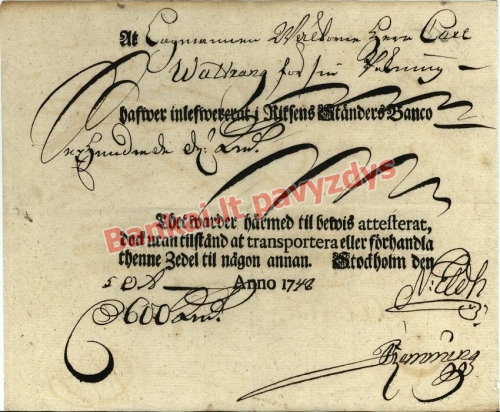 At Lagmannen Wälborne Herr Carl
Wattrang för sin Räkning
hafwer inlefwererat i Riksens Ständers Banco
Sexhundrade dr: kmt.
Bankai.lt pavyzdys
Thet warder härmed til bewis attesterat,
dock utan tilstånd at transportera eller förhandla
thenne Zedel til någon annan. Stockholm den
5 Anno 1748
600 kmt.